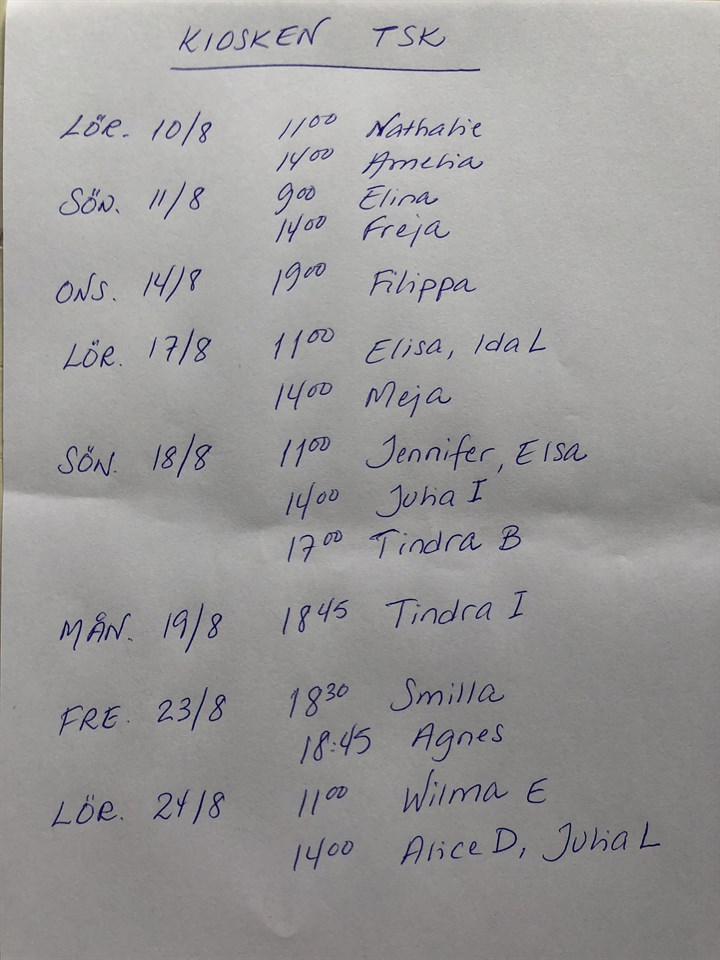 KIOSKEN TSK
LÖR. 10/8 1100 Nathalie
1400 Amelia
SÖN. 11/8 900 Elina
1400 Freja
ONS. 14/8 1900 Filippa
LÖR. 17/8 1100 Elisa, Ida L
1400 Meja
SÖN. 18/8 1100 Jennifer, Elsa
1400 Julia I
1700 Tindra B
MÅN. 19/8 1845 Tindra I
FRE. 23/8 1830 Smilla
18:45 Agnes
LÖR. 24/8 1100 Wilma E
1400 Alice D, Julia L